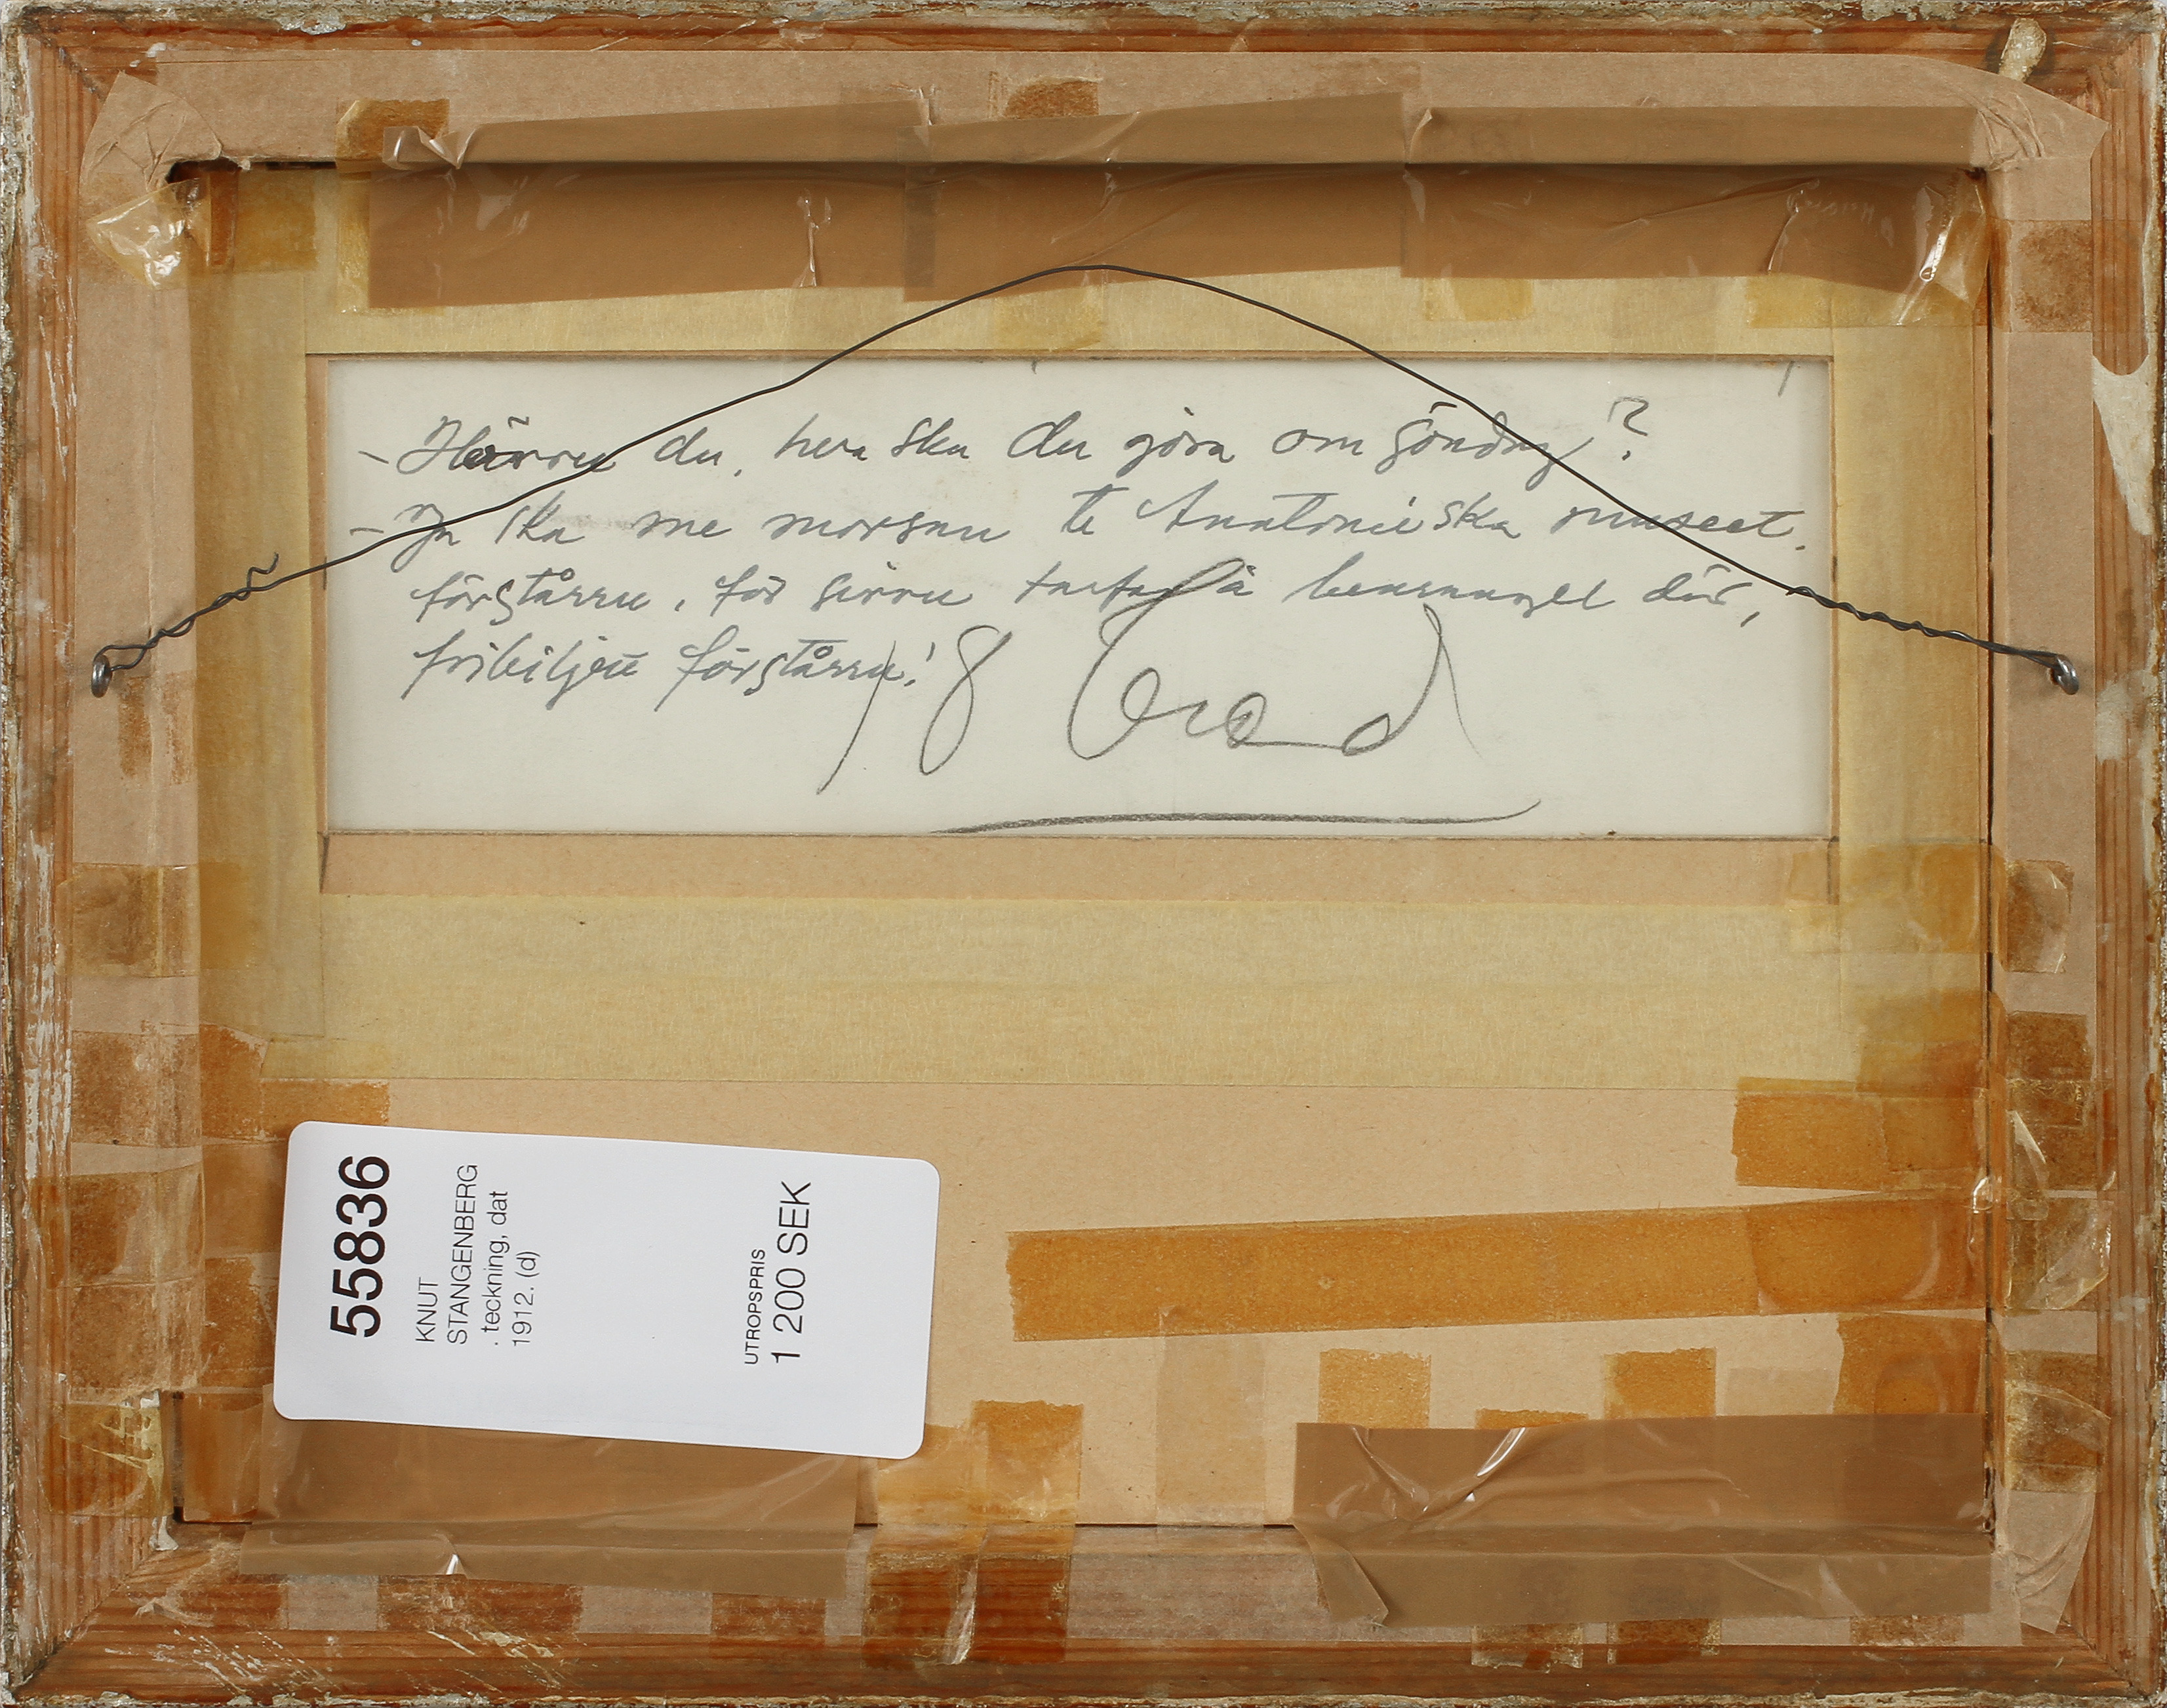 - Hörru du, hva ska du göra om söndag?
- Ja ska me morsan te Anatomiska museet,
förstårru, för sirru farfar ä benrangel där,
fribiljett förstårru!
18 brad
55836
KNUT
STANGENBERG
. teckning, dat
1912. (d)
UTROPSPRIS
1 200 SEK